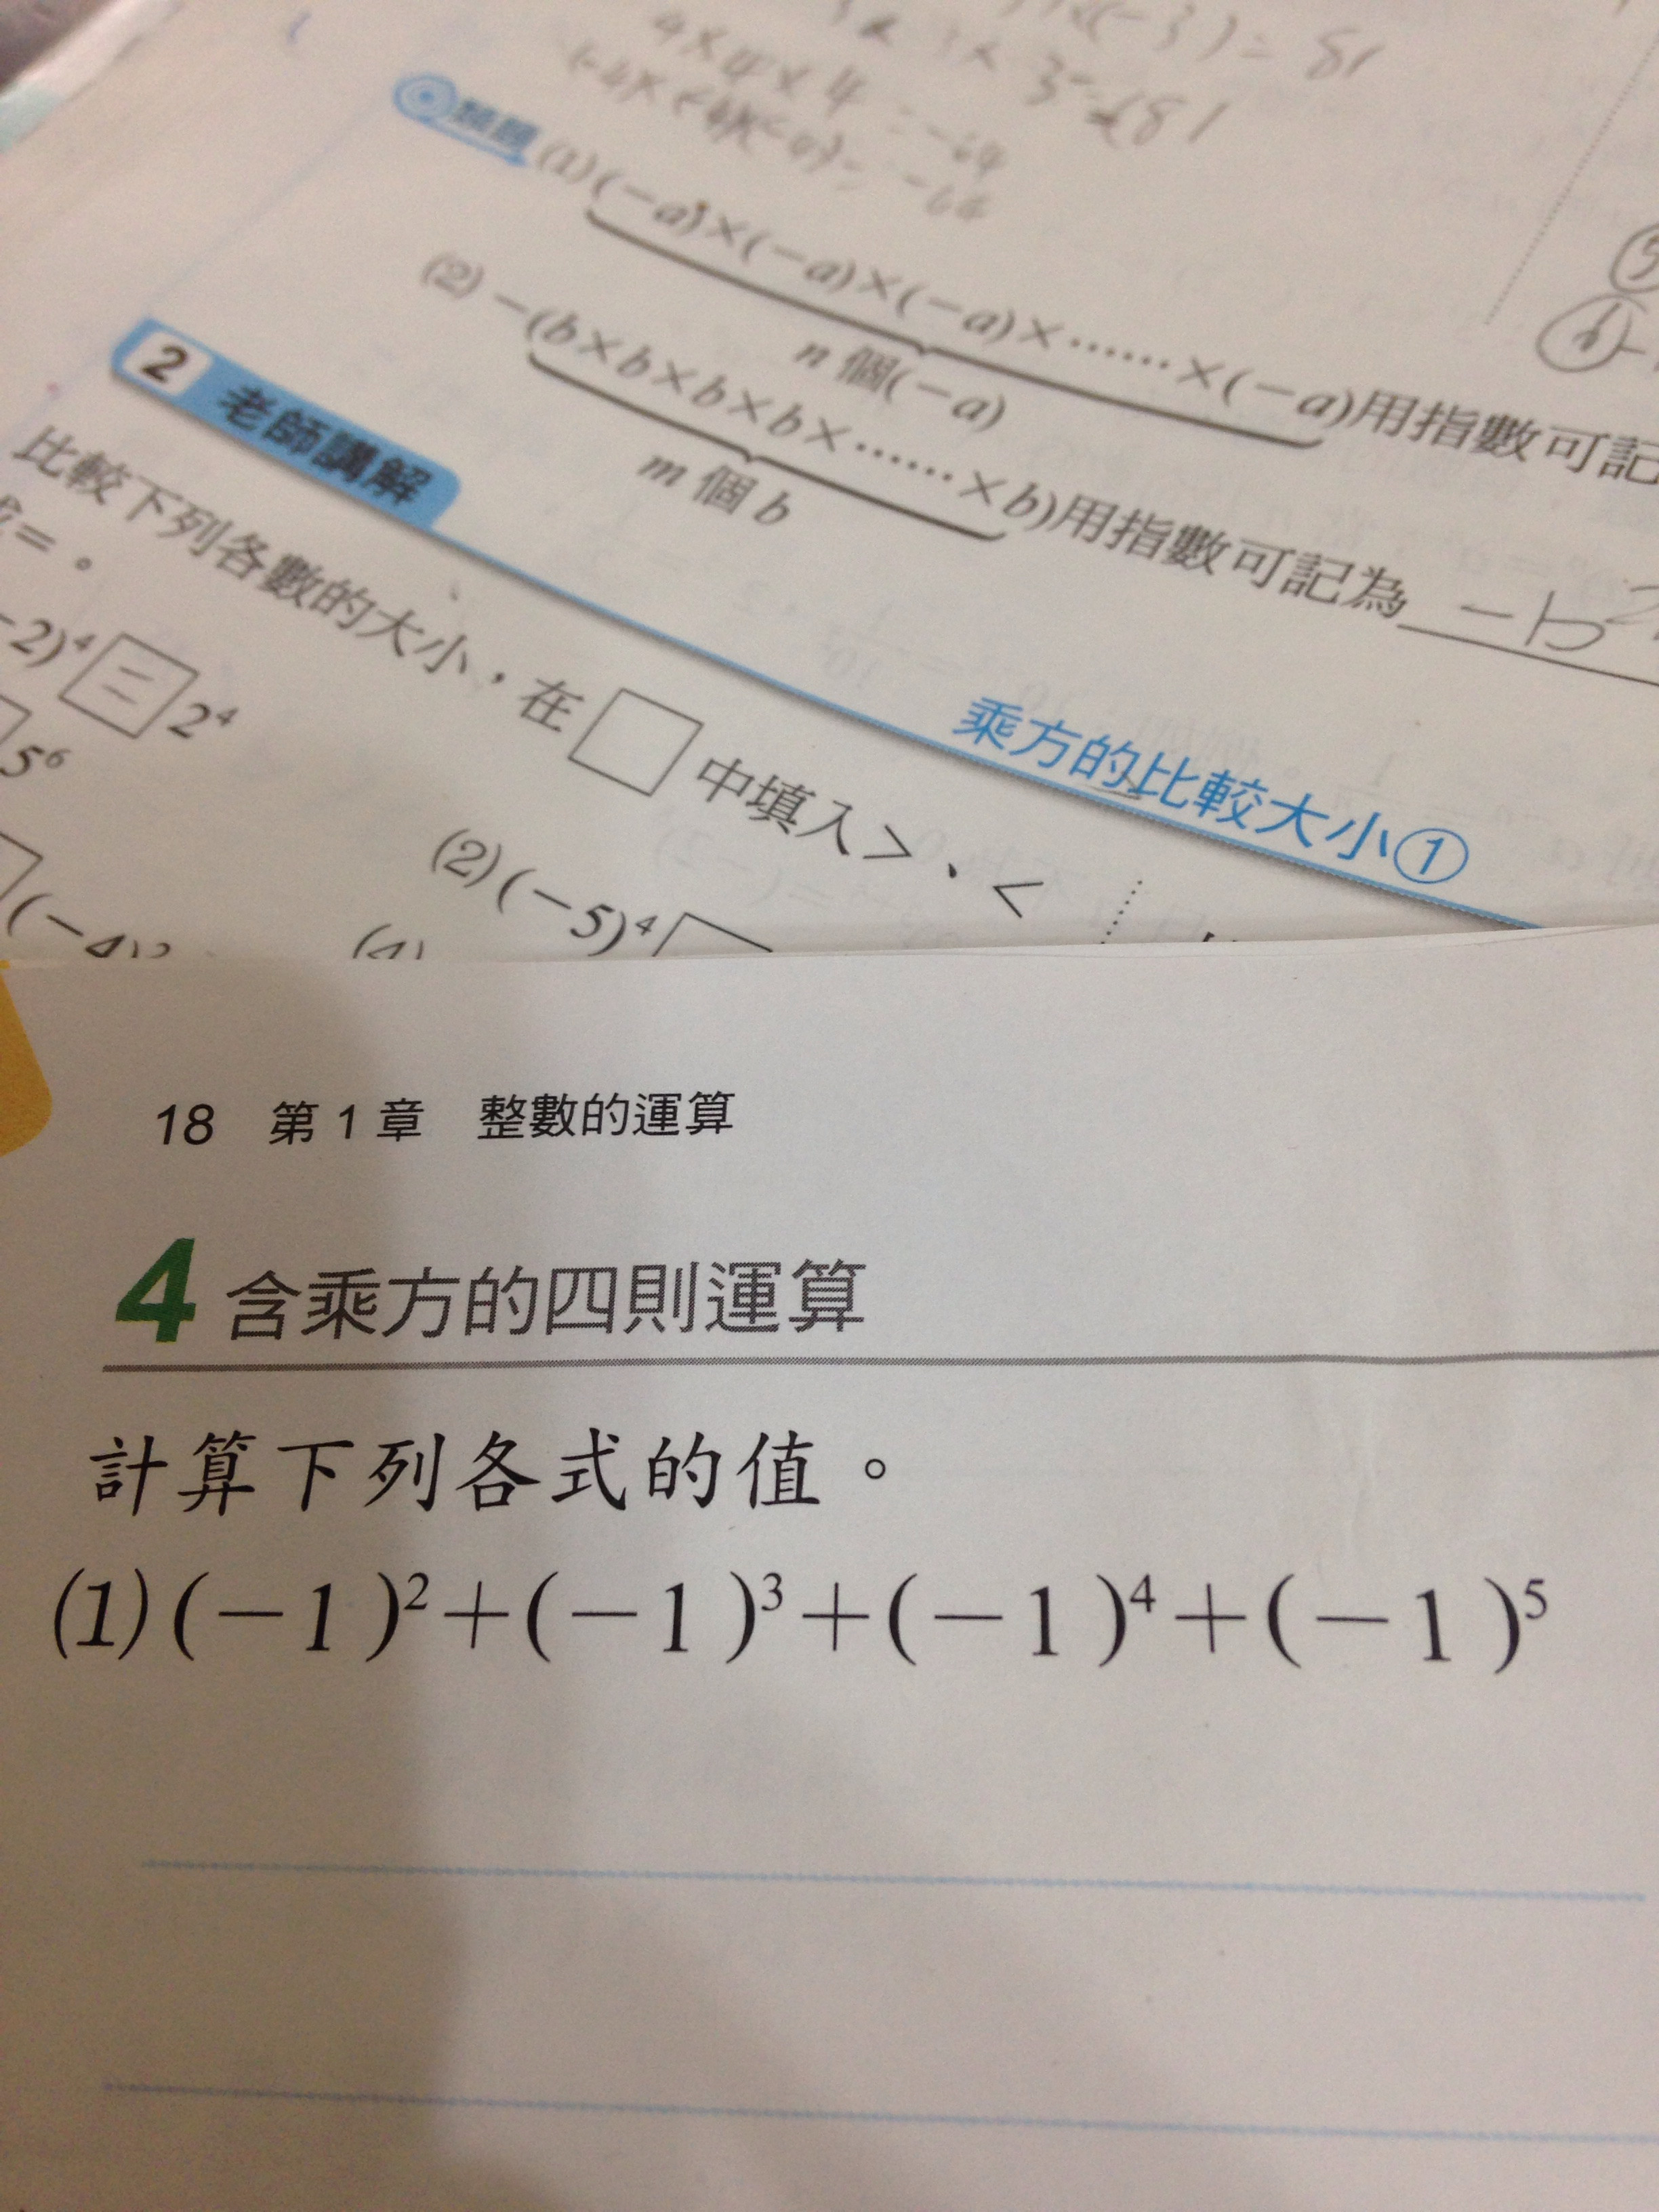 ×(-3)=81
4×4×4=-64
(-4)×(-4)×(-4)=-64
(1)(-a)×(-a)×(-a)×……×(-a)用指數可記
n個(-a)
(2)-(b×b×b×b×……×b)用指數可記為
m個b
2 老師講解
乘方的比較大小①
比較下列各數的大小，在□中填入>、<
=。
-2)⁴ = 2⁴
(2)(-5)⁴□
5⁶
(-4)
(4)
18 第1章 整數的運算
4 含乘方的四則運算
計算下列各式的值。
(1)(-1)²+(-1)³+(-1)⁴+(-1)⁵